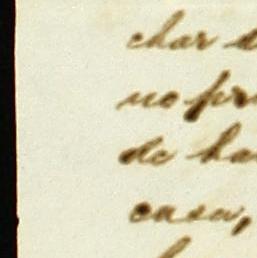 char
no pr
de ha
casa,